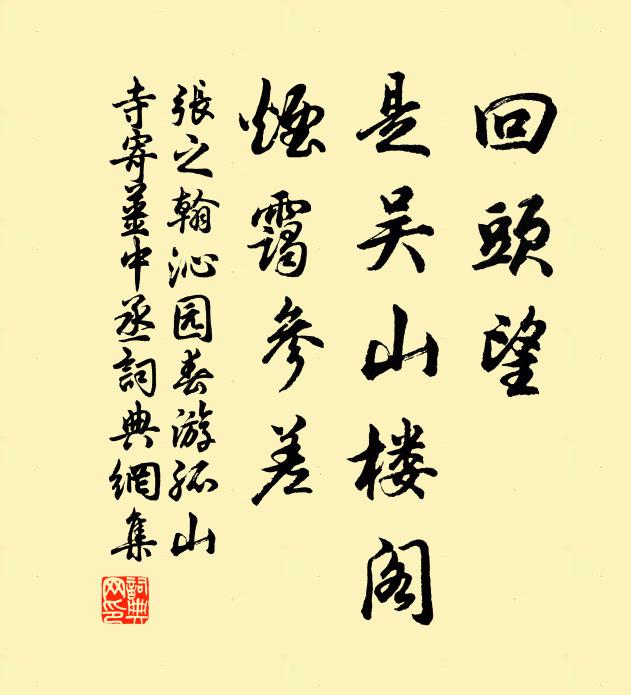 回頭望
是吴山楼阁
煙靄參差
張之翰沁园春游孤山
寺寄姜中丞詞典網集
詞典網印